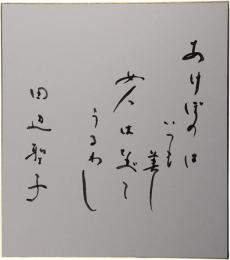 あけぼのは
いつも
美し
女人は
うるわし
田辺聖子